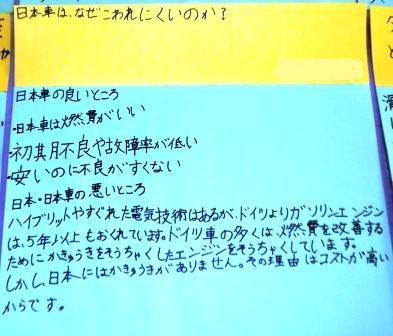 日本車は、なぜこわれにくいのか?
日本車の良いところ
・日本車は燃費がいい
・初期不良や故障率が低い
・安いのに不良がすくない
日本・日本車の悪いところ
ハイブリットやすぐれた電気技術はあるが、ドイツよりガソリンエンジン
は、5年以上もおくれています。ドイツ車の多くは、燃費を改善する
ためにかきゅうきをそうちゃくしたエンジンをそうちゃくしています。
しかし、日本にはかきゅうきがありません。その理由はコストが高い
からです。